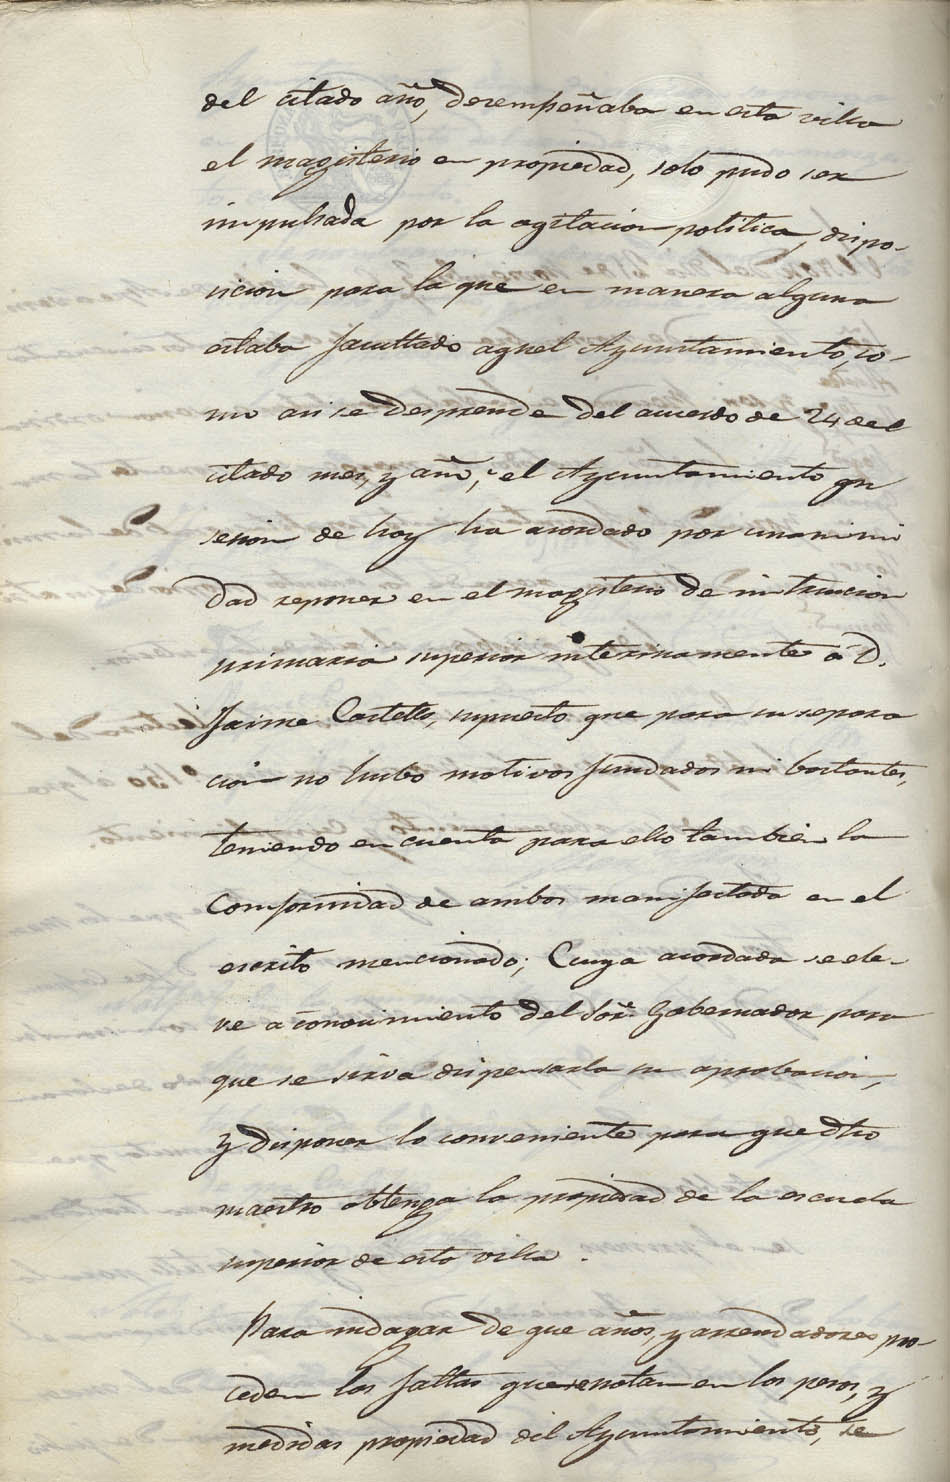 del citado año, desempeñaba en esta villa
el magisterio en propiedad, solo pudo ser
impulsada por la agitacion politica, dispo-
sicion para la que en manera alguna
estaba facultado aquel Ayuntamiento, co-
mo asi se desprende del acuerdo de 24 del
citado mes, y año; el Ayuntamiento en
sesion de hoy ha acordado por unanimi
dad reponer en el magisterio de intruccion
primaria superior interinamente a D.
Jaime Castells, supuesto que para su separa
cion no hubo motivos fundados ni bastantes,
teniendo en cuenta para ello tambien la
Conformidad de ambos manifestada en el
escrito mencionado; Cuya acordada se ele-
ve a conocimiento del Sor. Gobernador para
que se sirva dispensarla su aprobacion,
y disponer lo conveniente para que dho
maestro obtenga la propiedad de la escuela
superior de esta villa.
Para indagar de que años, y arrendadores pro-
ceden las faltas que se notan en los pesos, y
medidas propiedad del Ayuntamiento, se